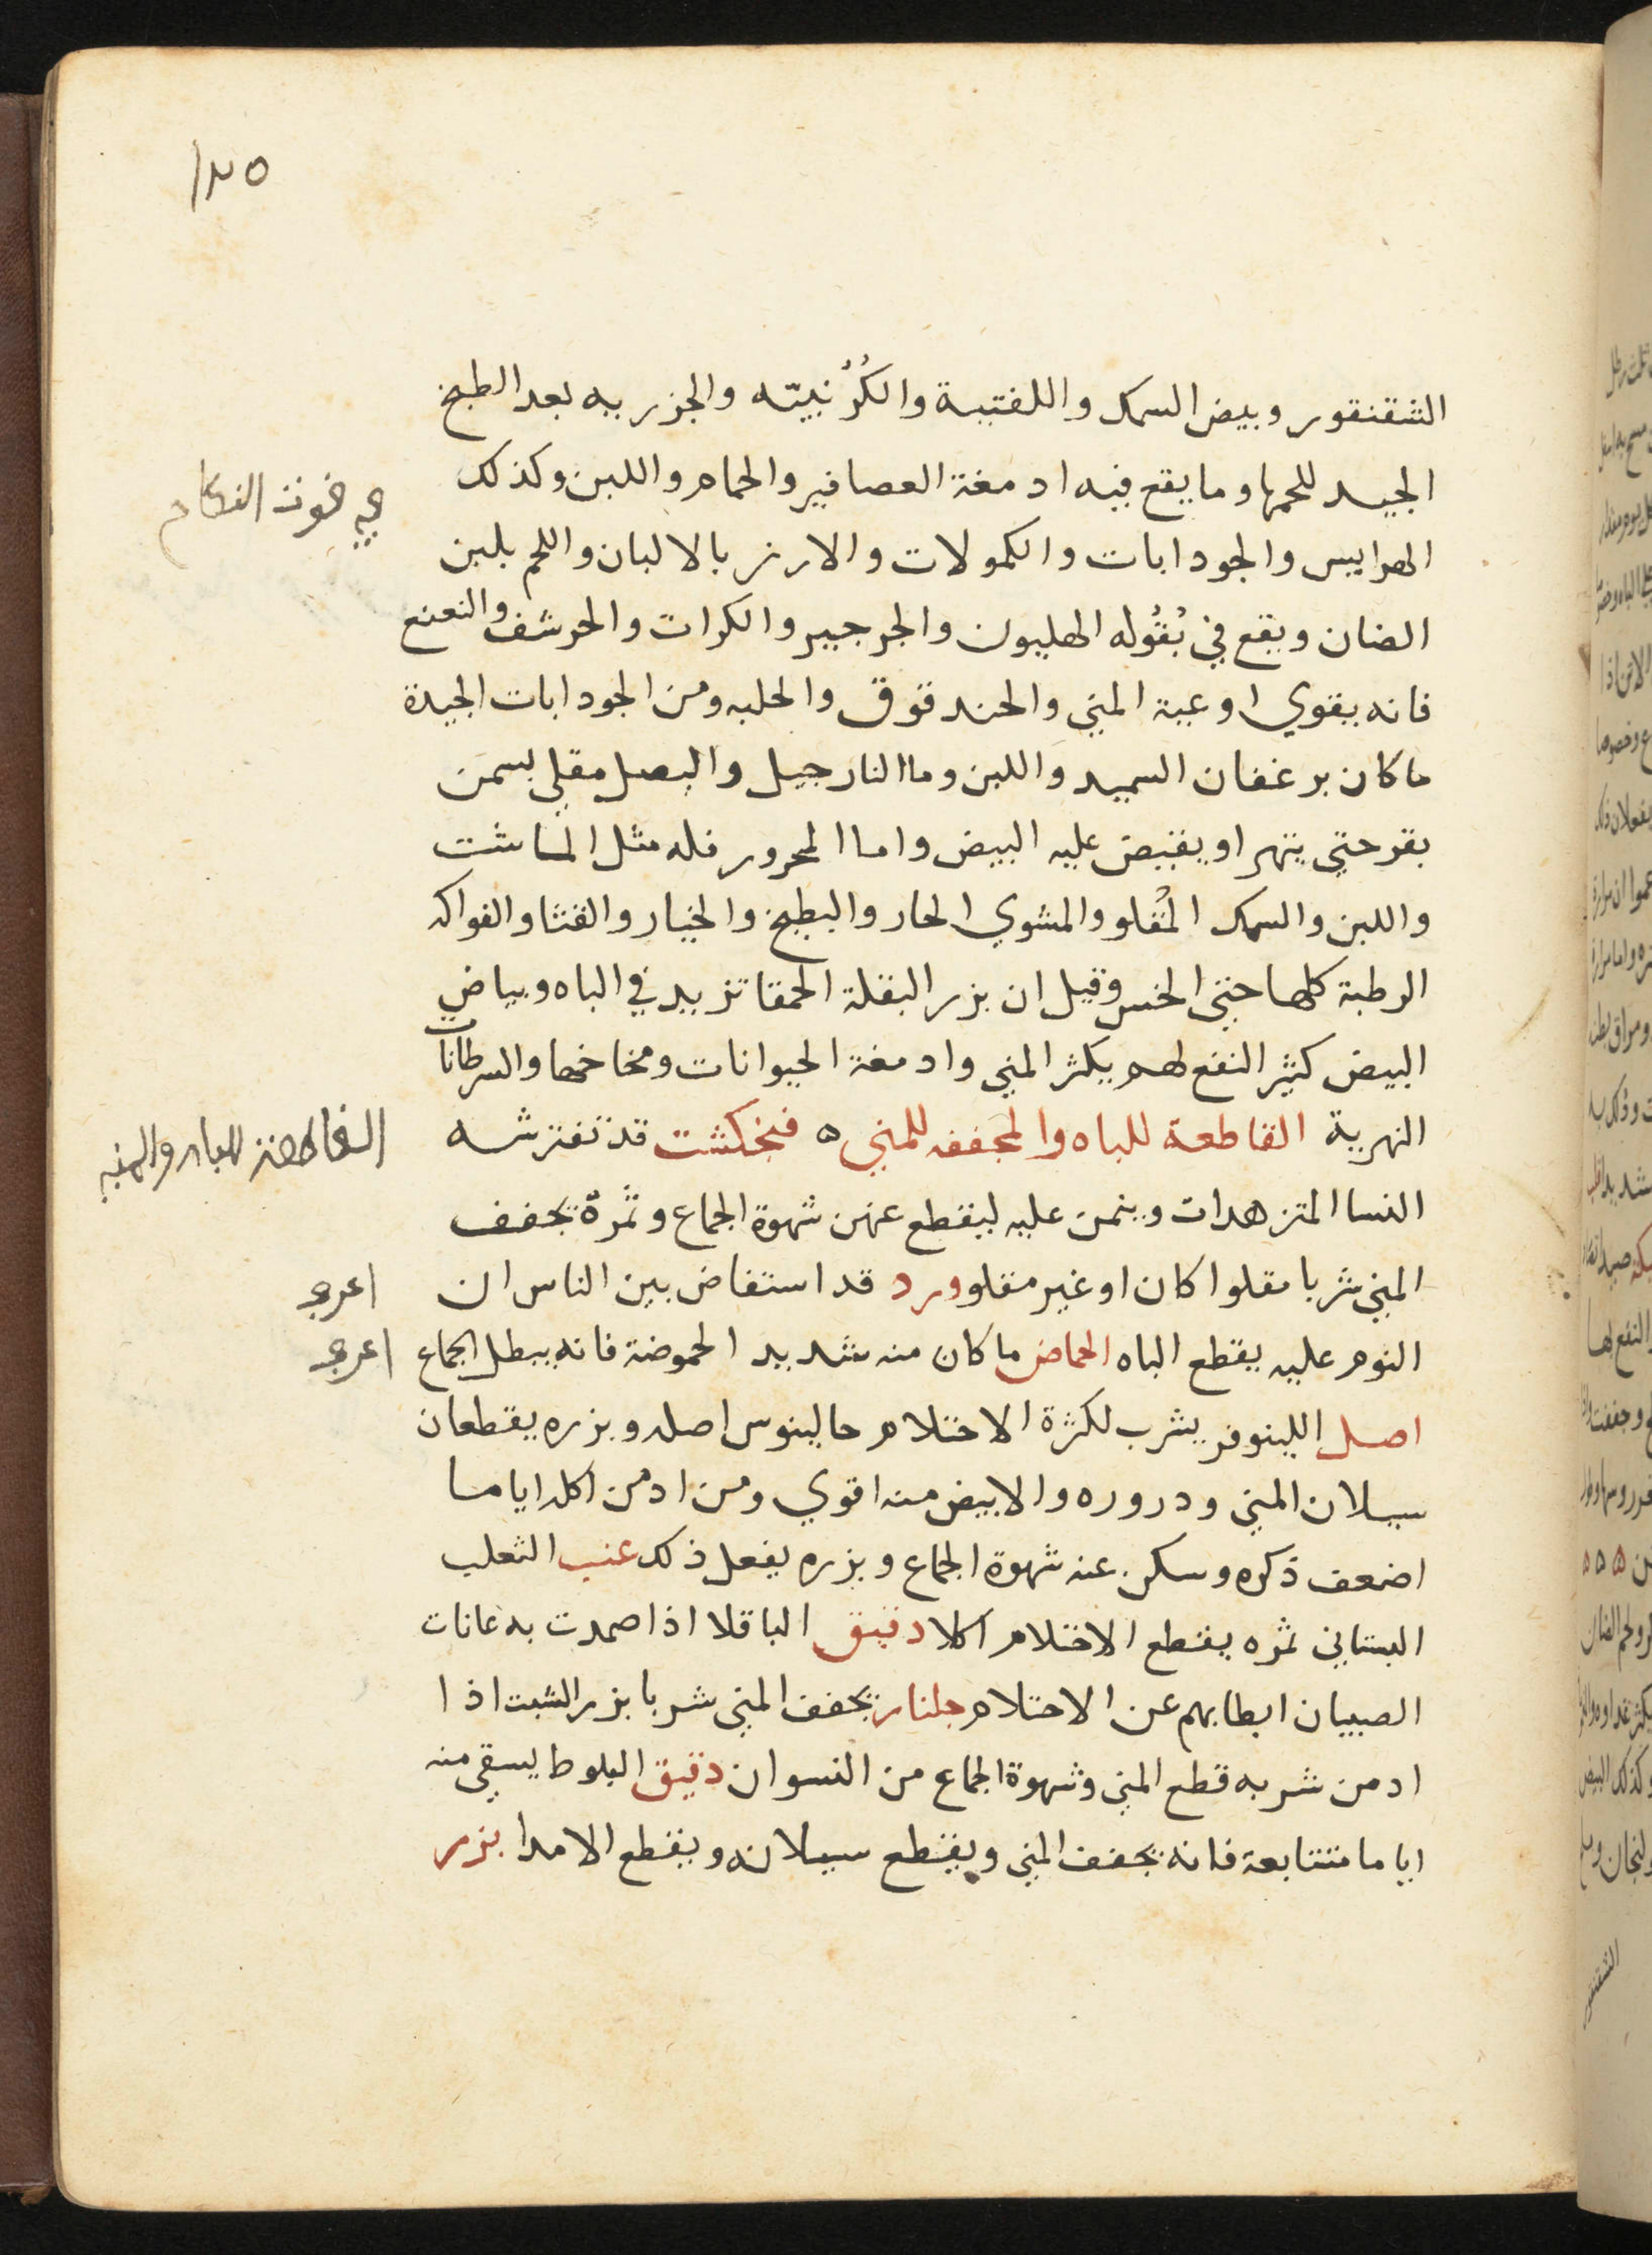 ١٢٥
الشقنقور وبيض السمك واللفتية والكُرُنبيّه والجزريه بعد الطبخ
الجيد للحمها وما يقع فيه ادمغة العصافير والحمام واللبن وكذلك
الهرايس والجودابات والكمولات والارز بالالبان واللحم بلبن
الضان ويقع في بُقُوله الهليون والجرجير والكراث والحرشف والنعنع
فانه يقوي اوعية المني والحندقوق والحلبه ومن الجودابات الجيدة
ما كان برغفان السميد واللبن وما النارجيل والبصل مقلي بسمن
بقر حتي يتهرا ويقبض عليه البيض واما المحرور فله مثل الماشت
واللبن والسمك المُقلو والمشوي الحار والبطيخ والخيار والقثا والفواكه
الرطبة كلها حتي الخس وقيل ان بزر البقلة الحمقا تزيد في الباه وبياض
البيض كثير النفع لهم يكثر المني وادمغة الحيوانات ومخاخها والسرطانات
النهرية القاطعة للباه والمجففه للمني ٥ فنجكشت قد تفترشه
النسا المتزهدات وينمن عليه ليقطع عنهن شهوة الجماع وثمرة يجفف
المني شربا مقلوا كان او غير مقلو ورد قد استفاض بين الناس ان
النوم عليه يقطع الباه الحماض ما كان منه شديد الحموضة فانه يبطل الجماع
اصل اللينوفر يشرب لكثرة الاحتلام جالينوس اصله وبزره يقطعان
سيلان المني ودروره والابيض منه اقوي ومن ادمن اكله اياما
اضعف ذكره وسكن عنه شهوة الجماع وبزره يفعل ذلك عنب الثعلب
البستاني ثمره يقطع الاحتلام اكلا دقيق الباقلا اذا ضمدت به عانات
الصبيان ابطا بهم عن الاحتلام جلنار يجفف المني شربا بزر الشبت اذا
ادمن شربه قطع المني وشهوة الجماع من النسوان دقيق البلوط يسقي منه
اياما متتابعة فانه يجفف المني ويقطع سيلانه ويقطع الامدا بزر
القاطعة للباه والمني